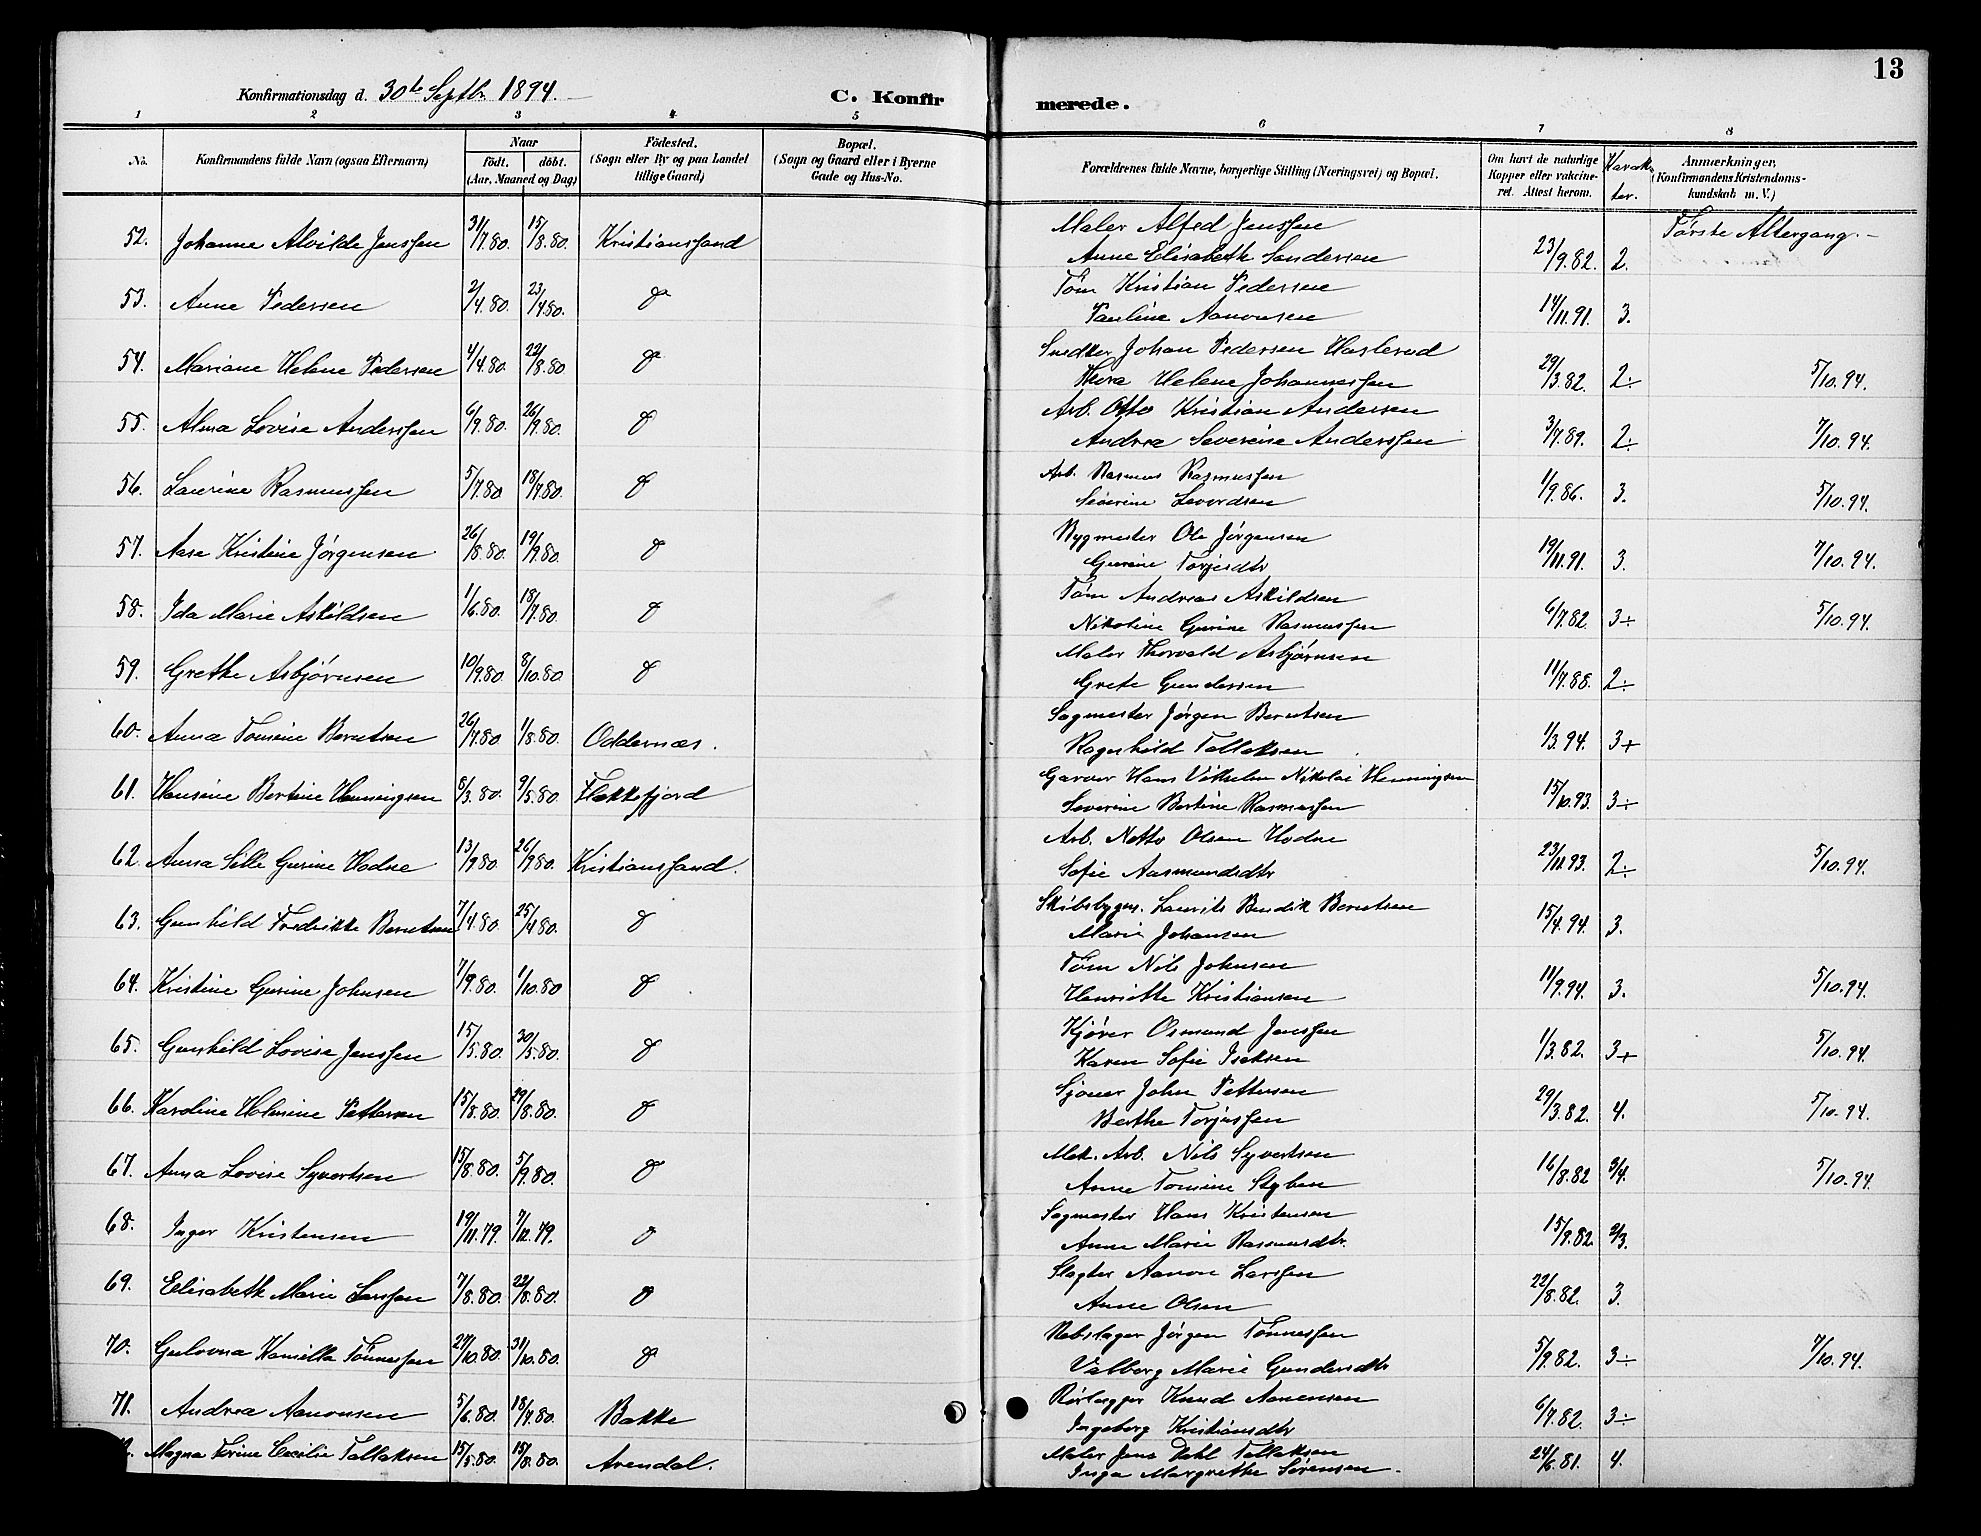 13
Konfirmationsdag d. 30te Septbr 1894. C. Konfirmerede.
1 2 3 4 5 6 7 8
No. Konfirmandens fulde Navn (ogsaa Efternavn) Naar födt. döbt. (Aar, Maaned og Dag) Födested. (Sogn eller By og paa Landet tillige Gaard) Bopæl. (Sogn og Gaard eller i Byerne Gade og Hus-No. Forældrenes fulde Navne, borgerlige Stilling (Næringsvei) og Bopæl. Om havt de naturlige Kopper eller vakcineret. Attest herom. Karakter. Anmærkninger, (Konfirmandens Kristendomskundskab m. V.)
Første Altergang.
52. Johanne Alvilde Jenssen 31/7.80. 15/8.80. Kristianssand Maler Alfed Jenssen
Anne Elisabeth Sandersen 23/9.82. 2.
53. Anne Pedersen 2/4.80. 23/4.80. do Tøm Kristian Pedersen
Pauline Aanonsen 14/11.91. 3.
54. Mariane Helene Pedersen 4/4.80. 22/8.80 do Snedker Johan Pedersen Haslerud
Thora Helene Johannessen 29/3.82. 2÷ 5/10.94.
55. Alma Lovise Anderssen 6/9.80. 26/9.80. do Arb. Otto Kristian Andersen
Andrea Severine Anderssen 3/7.89. 2÷ 7/10.94.
56. Laurine Rasmussen 5/7.80 18/7.80. do Arb. Rasmus Rasmussen
Severine Levordsen 1/9.86. 3. 5/10.94.
57. Aase Kristine Jörgensen 26/8.80. 19/9.80. do Bygmester Ole Jörgensen
Gurine Torjesdtr 19/11.91. 3. 7/10.94.
58. Ida Marie Askildsen 1/6.80. 18/7.80. do Tøm Andreas Askildsen
Nikoline Gurine Rasmussen 6/7.82. 3÷ 5/10.94.
59. Grethe Asbjørnsen 10/9.80. 8/10.80 do Maler Thorvald Asbjørnsen
Grete Gundersen 11/7.88. 2÷
60. Anna Tomine Berntsen 26/7.80 1/8.80. Oddernæs. Sagmester Jørgen Berntsen
Ragnhild Tallaksen 1/3.94. 3+
61. Hansine Bertine Henningsen 8/3.80. 9/5.80. Flekkefjord Garver Hans Vilhelm Nikolai Henningsen
Severine Bertine Rasmussen 15/10.93. 3÷
62. Anna Sille Gurine Hodne 13/9.80 26/9.80. Kristianssand. Arb. Netto Olsen Hodne
Sofie Aasmundsdtr 23/11.93. 2÷ 5/10.94.
63. Gunhild Fredrikke Berntsen 7/4.80. 25/4.80. do Skibsbygm. Laurits Bendik Berntsen
Marie Johansen 15/4.94. 3.
64. Kristine Gurine Johnsen 7/9.80. 1/10.80 do Tøm Nils Johnsen
Henriette Kristiansen 11/9.94. 3. 5/10.94.
65. Gunhild Lovise Jenssen 15/5.80. 30/5.80. do Kjører Osmund Jenssen
Karen Sofie Iseksen 1/3.82. 3+ 5/10.94.
66. Karoline Holmine Pettersen 15/8.80. 29/8.80. do Sjömr John Pettersen
Berthe Torjussen 29/3.82. 4. 5/10.94.
67. Anna Lovise Syvertsen 15/8.80. 5/9.80. do Mek. Arb. Nils Syvertsen
Anne Tomine Styben 16/8.82 3/4. 5/10.94.
68. Inger Kristensen 19/11.79. 7/12.79. do Sagmester Hans Kristensen
Anne Marie Rasmusdtr. 15/9.82 2/3.
69. Elisabeth Marie Larssen 7/8.80. 22/8.80. do Slagter Aanon Larssen
Anne Olsen 22/8.82. 3.
70. Gulovna Kamilla Tönnessen 27/10.80. 31/10.80. do Rebslager Jørgen Tönnessen
Valborg Marie Gundersdtr 5/9.82. 3÷ 7/10.94.
71. Andrea Aanonsen 5/6.80. 18/7.80. Bakke Rørlegger Knud Aanensen
Ingeborg Kristiansdtr 6/7.82. 3÷
Magna Torine Cecilie Tallaksen 15/5.80. 15/8.80. Arendal. Maler Jens Dahl Tallaksen
Inga Margrethe Sørensen. 24/6.81. 4.